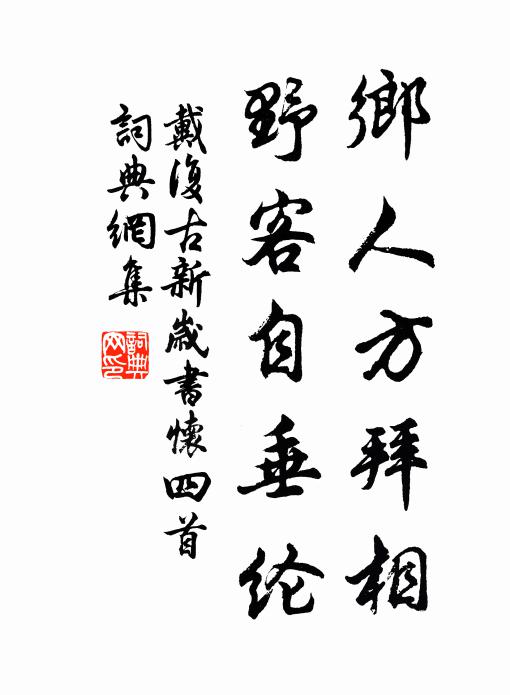 鄉人方拜相
野客自垂纶
戴復古新歲書懷四首
詞典網集
詞典网印